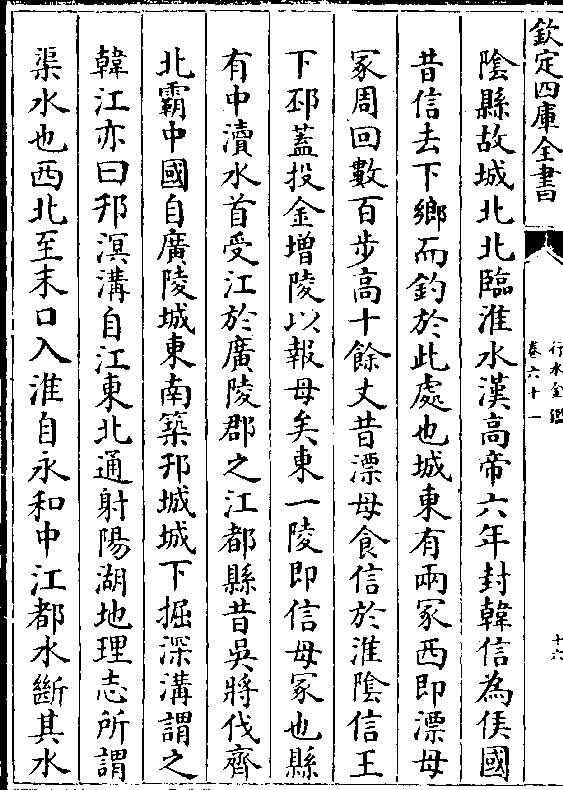 欽定四庫全書
行水金鑑
卷六十一
十六
陰縣故城北北臨淮水漢高帝六年封韓信為侯國
昔信去下鄉而釣於此處也城東有兩冢西即漂母
冢周回數百步高十餘丈昔漂母食信於淮陰信王
下邳蓋投金增陵以報母矣東一陵即信母冢也縣
有中瀆水首受江於廣陵郡之江都縣昔吳將伐齊
北霸中國自廣陵城東南築邗城城下掘深溝謂之
韓江亦曰邗溟溝自江東北通射陽湖地理志所謂
渠水也西北至末口入淮自永和中江都水斷其水